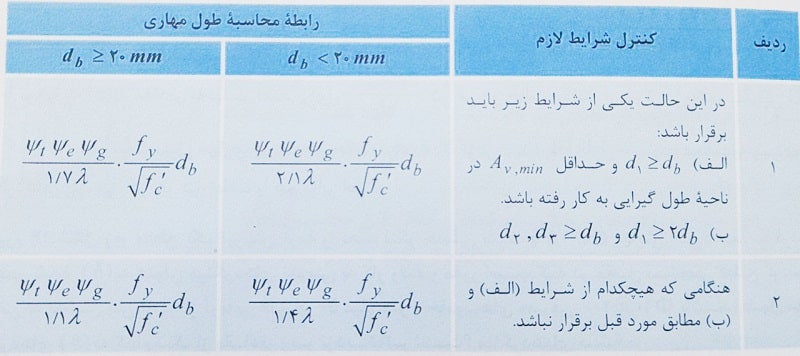 ردیف
کنترل شرایط لازم
رابطهٔ محاسبهٔ طول مهاری
d_b < ۲۰ mm
d_b ≥ ۲۰ mm
۱
در این حالت یکی از شرایط زیر باید
برقرار باشد:
الف) d_۱ ≥ d_b و حداقل A_{v,min} در
ناحیهٔ طول گیرایی به کار رفته باشد.
ب) d_۱ ≥ ۲d_b و d_۲ , d_۳ ≥ d_b
ψ_t ψ_e ψ_g / ۲/۱λ · f_y / √f_c' d_b
ψ_t ψ_e ψ_g / ۱/۷λ · f_y / √f_c' d_b
۲
هنگامی که هیچکدام از شرایط (الف) و
(ب) مطابق مورد قبل برقرار نباشد.
ψ_t ψ_e ψ_g / ۱/۴λ · f_y / √f_c' d_b
ψ_t ψ_e ψ_g / ۱/۱λ · f_y / √f_c' d_b